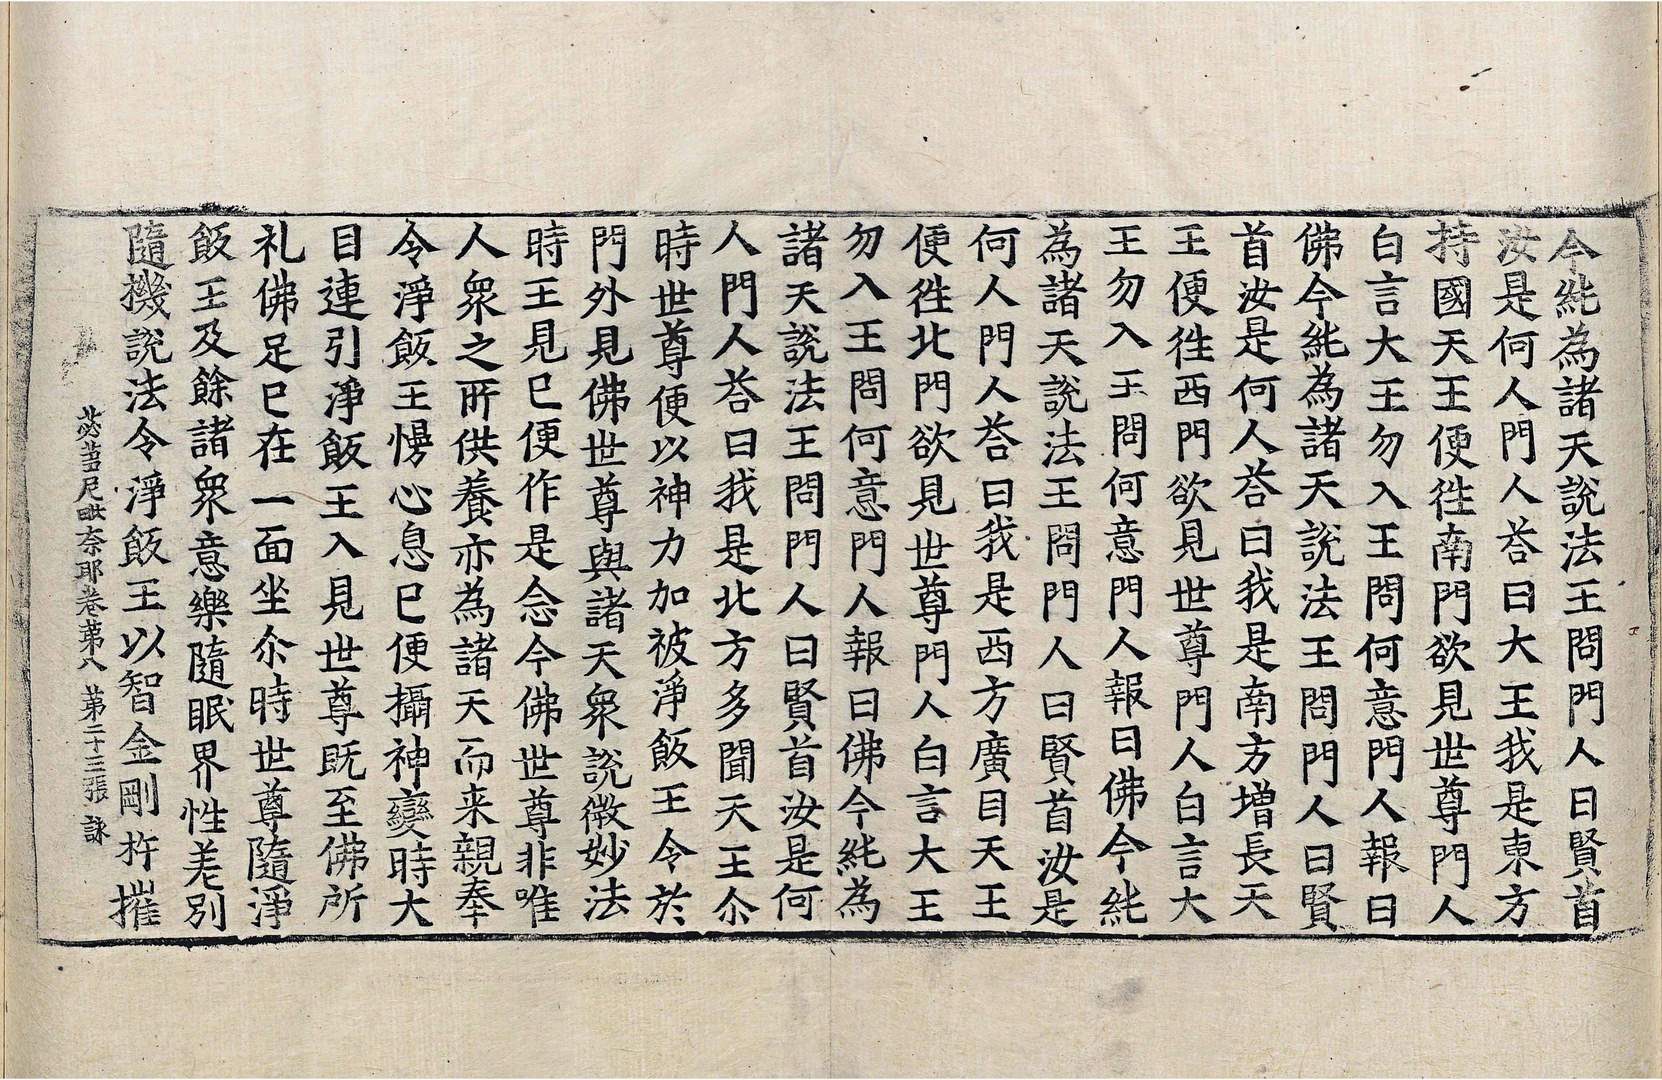 今純為諸天說法王問門人曰賢首
汝是何人門人荅曰大王我是東方
持國天王便徃南門欲見世尊門人
白言大王勿入王問何意門人報曰
佛今純為諸天說法王問門人曰賢
首汝是何人荅曰我是南方增長天
王便徃西門欲見世尊門人白言大
王勿入王問何意門人報曰佛今純
為諸天說法王問門人曰賢首汝是
何人門人荅曰我是西方廣目天王
便徃北門欲見世尊門人白言大王
勿入王問何意門人報曰佛今純為
諸天說法王問門人曰賢首汝是何
人門人荅曰我是北方多聞天王尒
時世尊便以神力加被淨飯王令於
門外見佛世尊與諸天衆說微妙法
時王見已便作是念今佛世尊非唯
人衆之所供養亦為諸天而来親奉
令淨飯王慢心息已便攝神變時大
目連引淨飯王入見世尊既至佛所
礼佛足已在一面坐尒時世尊隨淨
飯王及餘諸衆意樂隨眠界性差別
隨機說法令淨飯王以智金剛杵摧
苾芻尼毗奈耶卷第八 第二十三張 詠